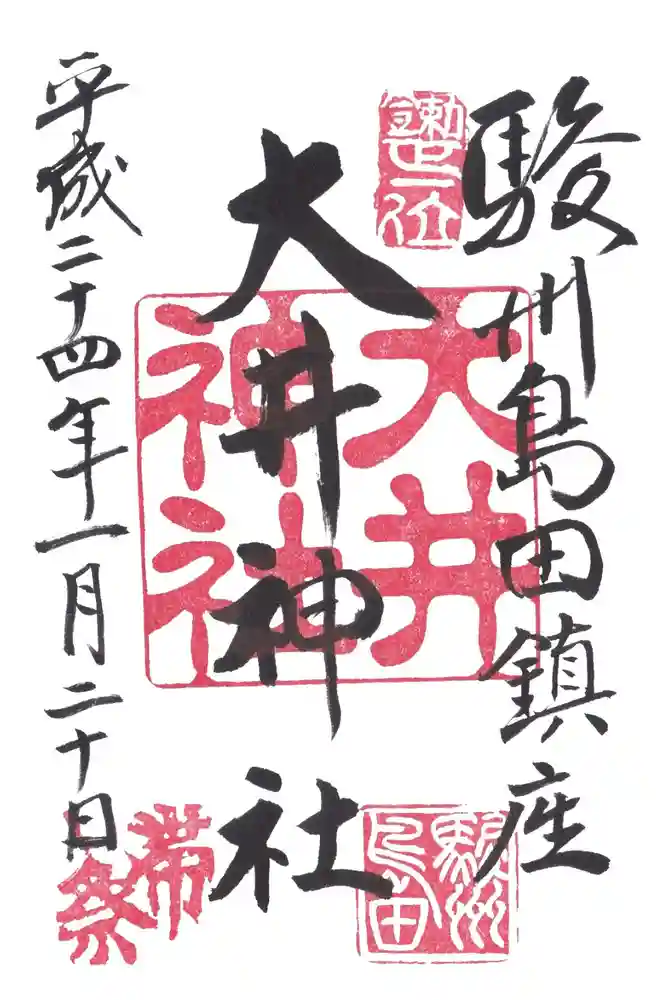 駿州島田鎮座
大井神社
平成二十四年一月二十日
正一位
大井神社
駿州島田
帯祭